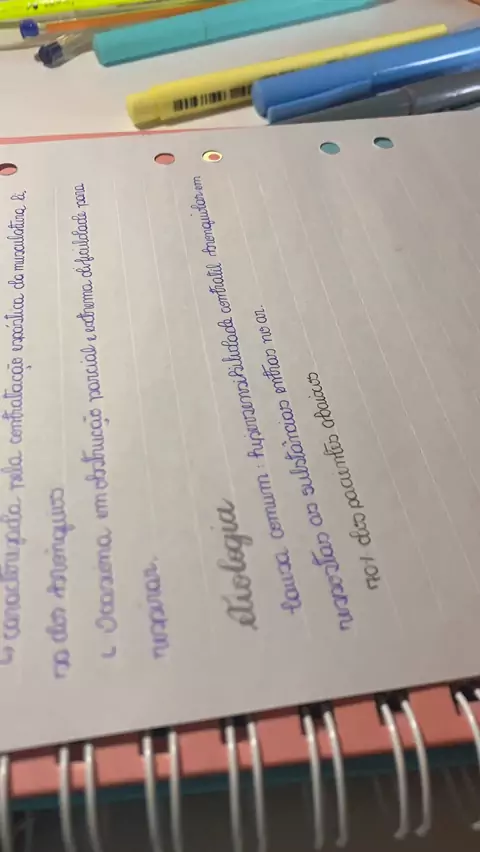 ↳ caracterizada pela contratação espástica da musculatura li
sa dos bronquios
↳ Ocasiona em obstrução parcial e extrema dificuldade para
respirar.
etiologia
Causa comum: hipersensibilidade contratil bronquiolar em
respostas as substâncias entras no ar.
70% dos pacientes abaixos